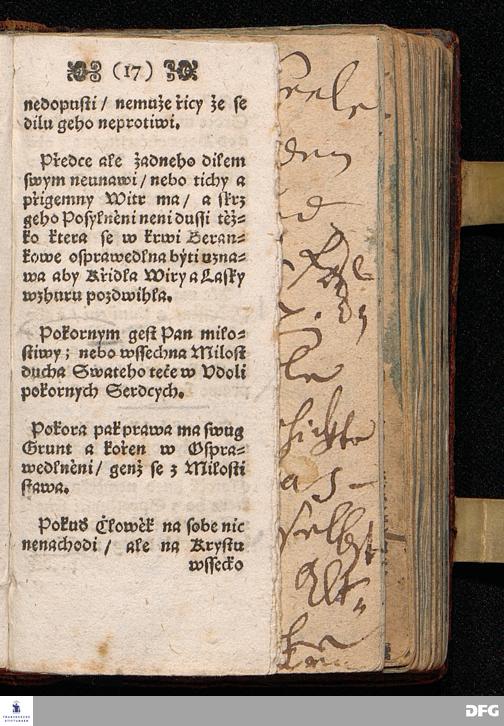 (17)
nedopusti / nemuže řicy že se
dilu geho neprotiwi.
Předce ale žadneho dilem
swym neunawi / nebo tichy a
přigemny Witr ma / a skrz
geho Posylněni neni dussi těž-
ko ktera se w krwi Beran-
kowe osprawedlna býti uzna-
wa aby Křidla Wiry a Lasky
wzhuru pozdwihla.
Pokornym gest Pan milo-
stiwy ; nebo wssechna Milost
ducha Swateho teče w Vdoli
pokornych Serdcych.
Pokora pak prawa ma swug
Grunt a kořen w Ospra-
wedlněni / genž se z Milosti
stawa.
Pokud Člowěk na sobe nic
nenachodi / ale na Krystu
wssecko
Seele
den
selbst
DFG